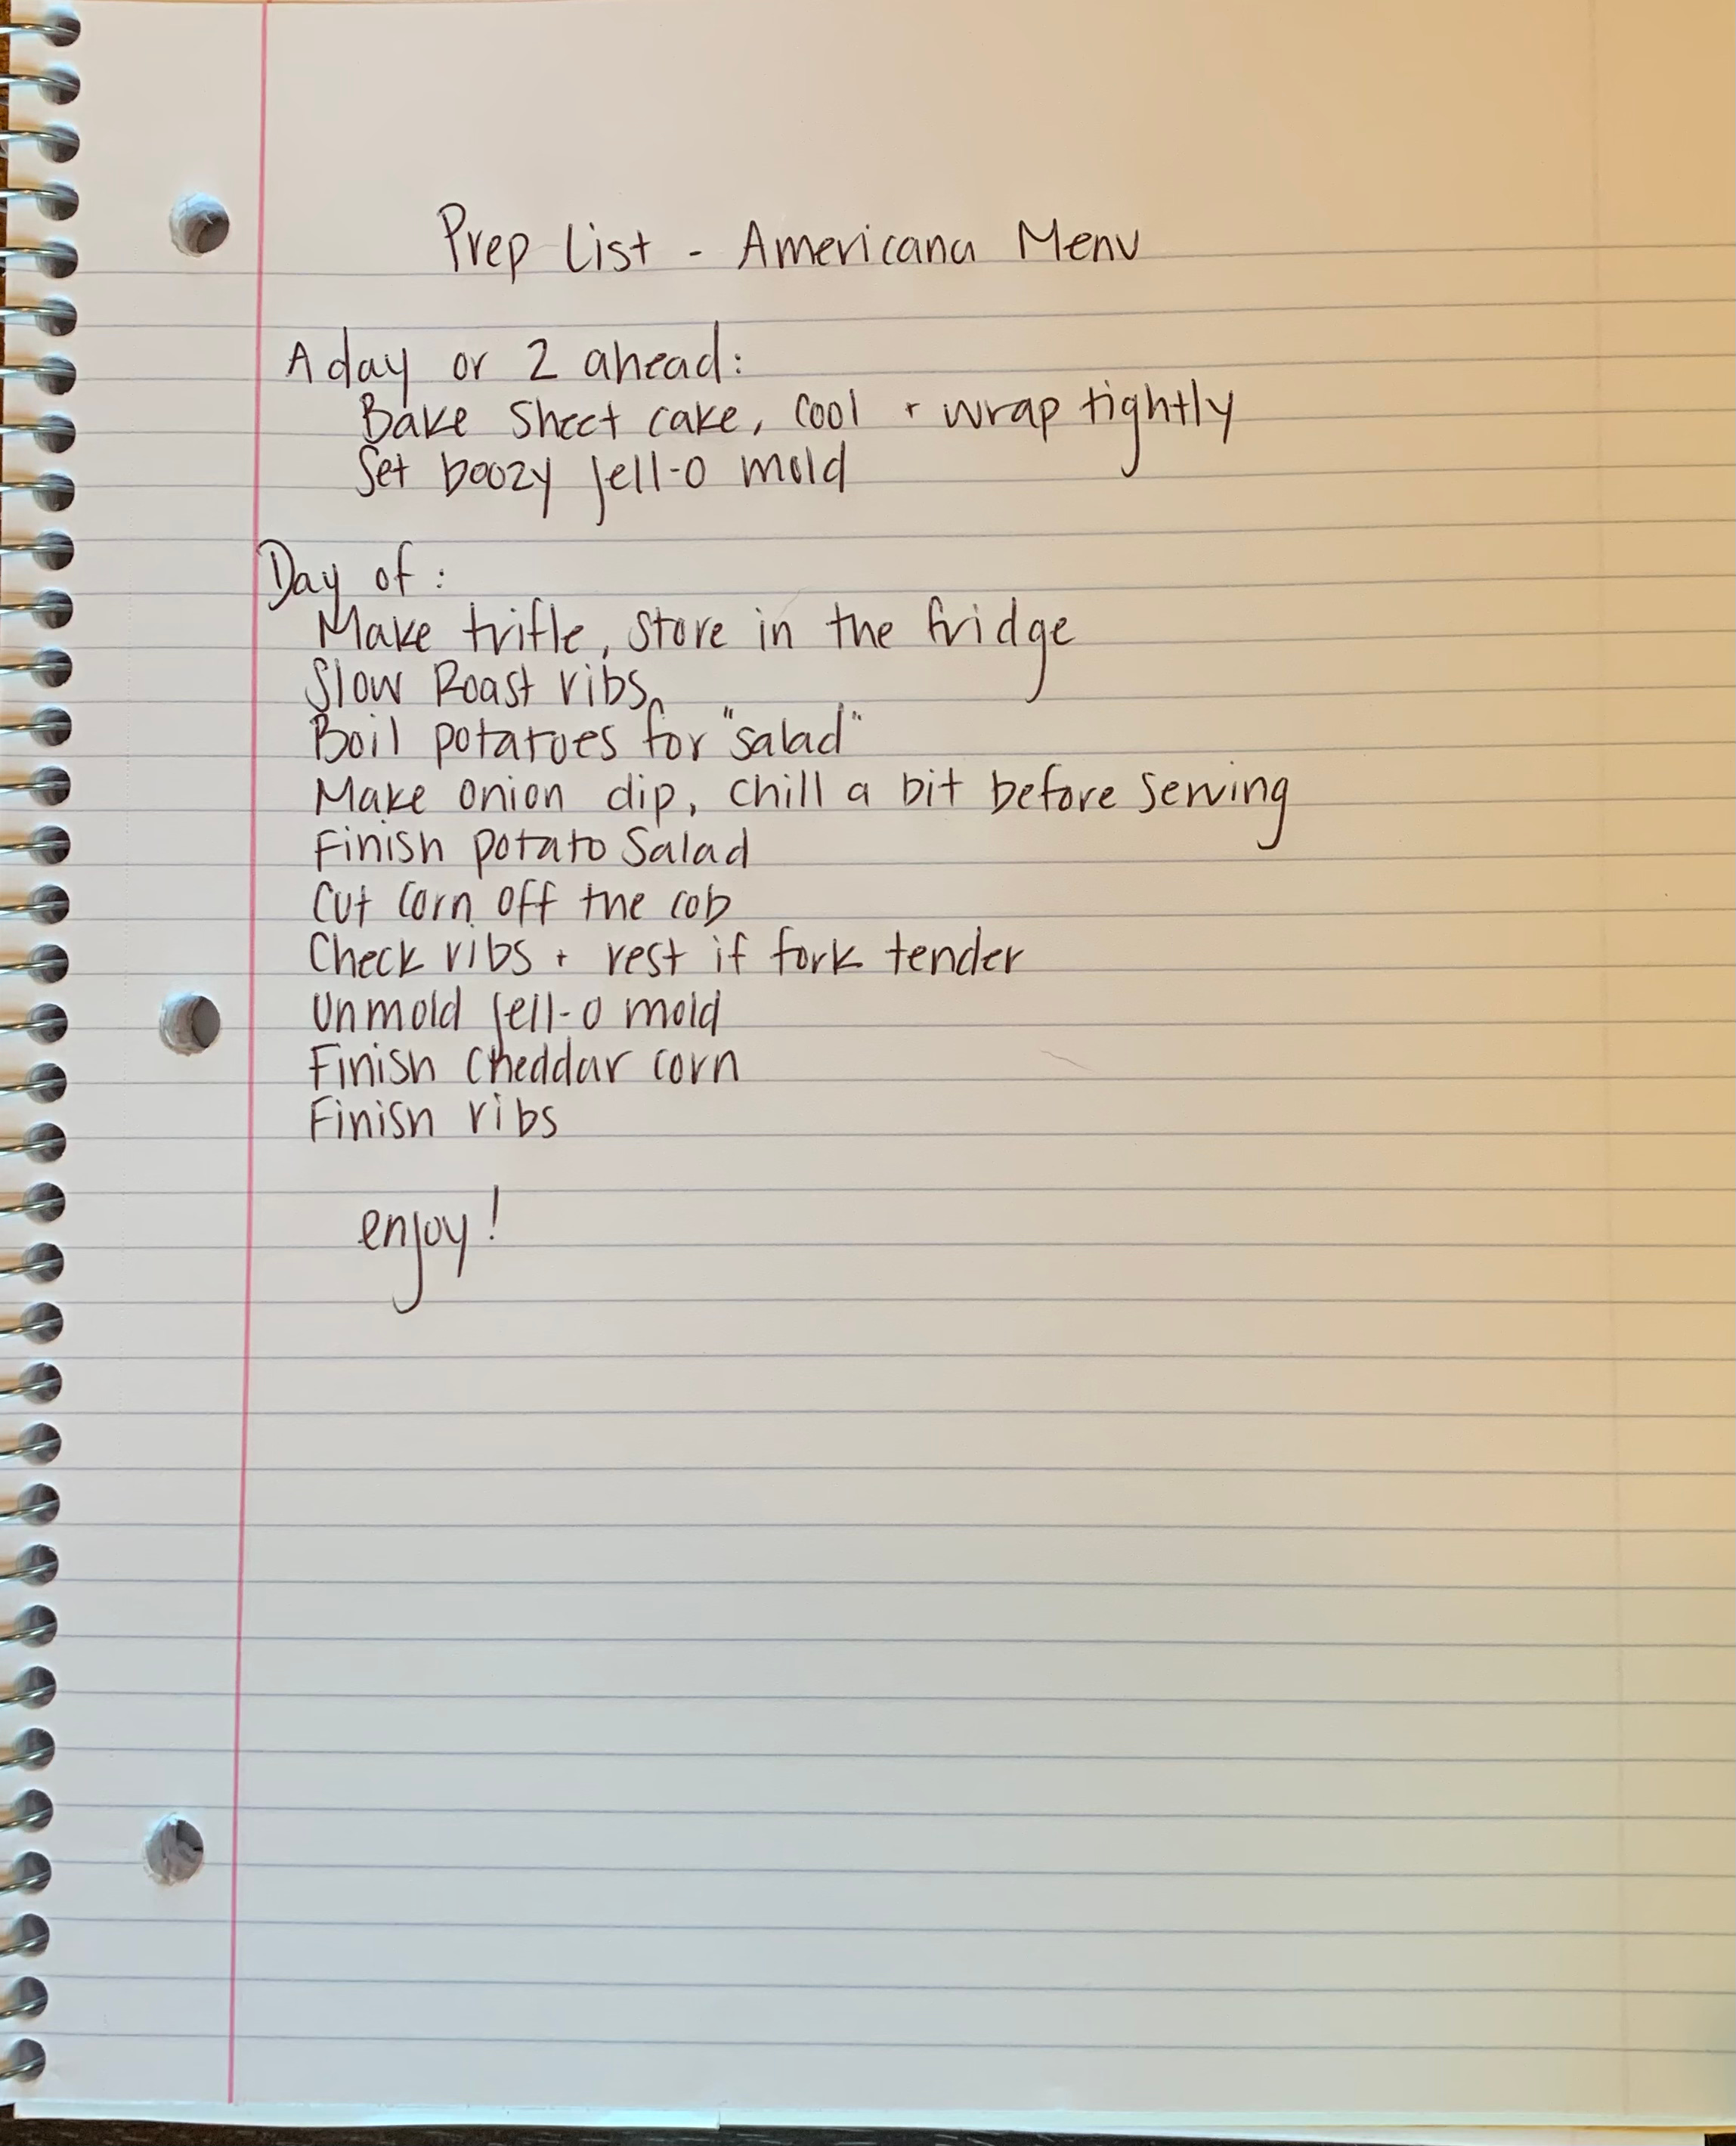 Prep List - Americana Menu
A day or 2 ahead:
Bake sheet cake, cool + wrap tightly
Set boozy jell-o mold
Day of:
Make trifle, store in the fridge
Slow Roast ribs
Boil potatoes for "salad"
Make onion dip, chill a bit before serving
Finish potato salad
Cut corn off the cob
Check ribs + rest if fork tender
Unmold jell-o mold
Finish cheddar corn
Finish ribs
enjoy!